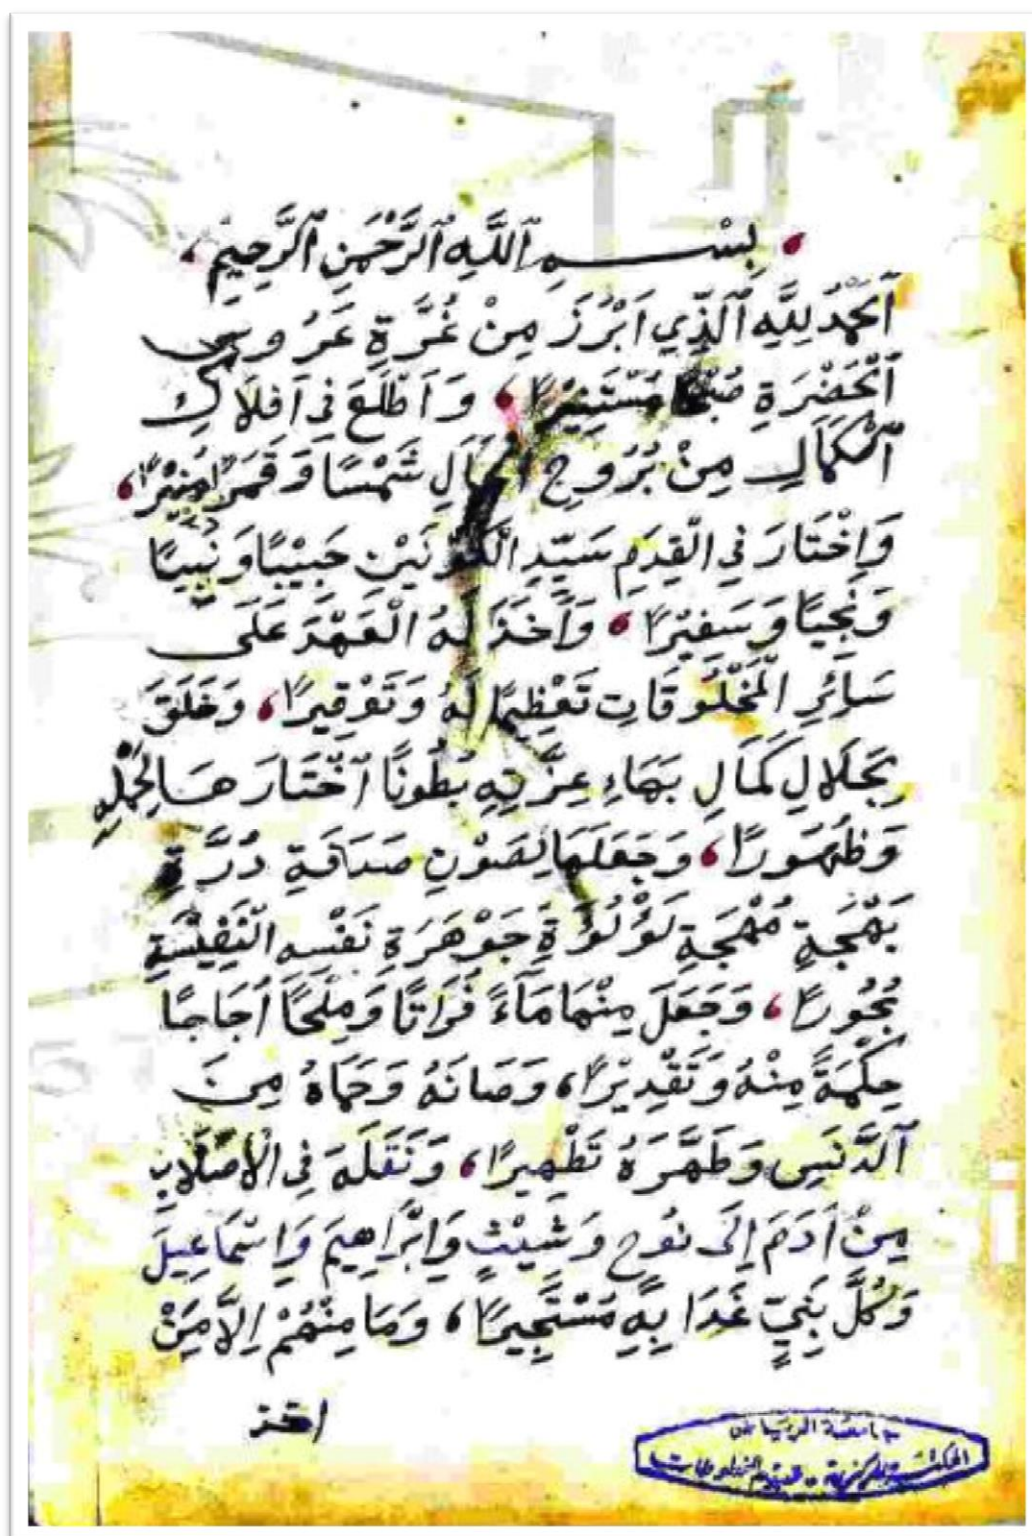 بِسْمِ ٱللَّهِ ٱلرَّحْمَنِ ٱلرَّحِيمِ
ٱلْحَمْدُ لِلَّهِ ٱلَّذِي اَبْرَزَ مِنْ غُرَّةِ عَرُوسِ
ٱلْحَضْرَةِ صُبْحًا مُسْتَنِيْرًا ، وَاَطْلَعَ فِي اَفْلَاكِ
ٱلْكَمَالِ مِنْ بُرُوجِ الْجَمَالِ شَمْسًا وَقَمَرًا مُنِيْرًا ،
وَاِخْتَارَ فِي الْقِدَمِ سَيِّدِ الْكَوْنَيْنِ حَبِيْبًا وَنَبِيًا
وَنَجِيًا وَسَفِيْرًا ، وَاَخَذَ لَهُ الْعَهْدَ عَلَى
سَائِرِ الْمَخْلُوقَاتِ تَعْظِيمًا لَهُ وَتَوْقِيرًا ، وَخَلَقَ
بِجَلَالِ كَمَالِ بَهَاءِ عِزَّتِهِ بُطُونًا ٱخْتَارَهَا لِحَمْلِهِ
وَظُهُورًا ، وَجَعَلَهَا لِصَوْنِ صَدَفَةِ دُرَّةِ
بَهْجَةِ مُهْجَةِ لُؤْلُؤَةِ جَوْهَرَةِ نَفْسِهِ النَّفِيْسَةِ
بُحُورًا ، وَجَعَلَ مِنْهَا مَآءً فُرَاتًا وَمِلْحًا اُجَاجًا
حِكْمَةً مِنْهُ وَتَقْدِيْرًا ، وَصَانَهُ وَحَمَاهُ مِنَ
ٱلدَّنَسِ وَطَهَّرَهُ تَطْهِيرًا ، وَنَقَلَهُ فِي الْاَصْلَابِ
مِنْ اَدَمَ اِلَى نُوحٍ وَشِيْثٍ وَاِبْرَاهِيمَ وَاِسْمَاعِيلَ
وَكُلَّ نَبِيٍّ غَدَا بِهِ مُسْتَجِيرًا ، وَمَا مِنْهُمْ اِلَّا مَنْ
اخذ
جامعة الرياض
المكتبة المركزية - قسم المخطوطات